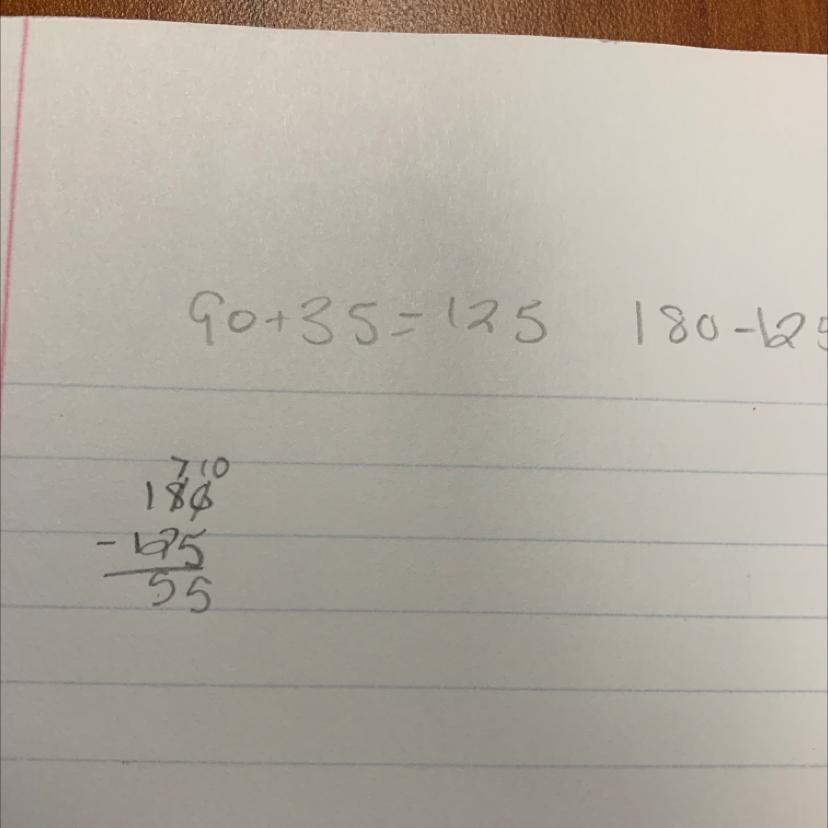 90+35=125 180-125
7 10
180
-125
55